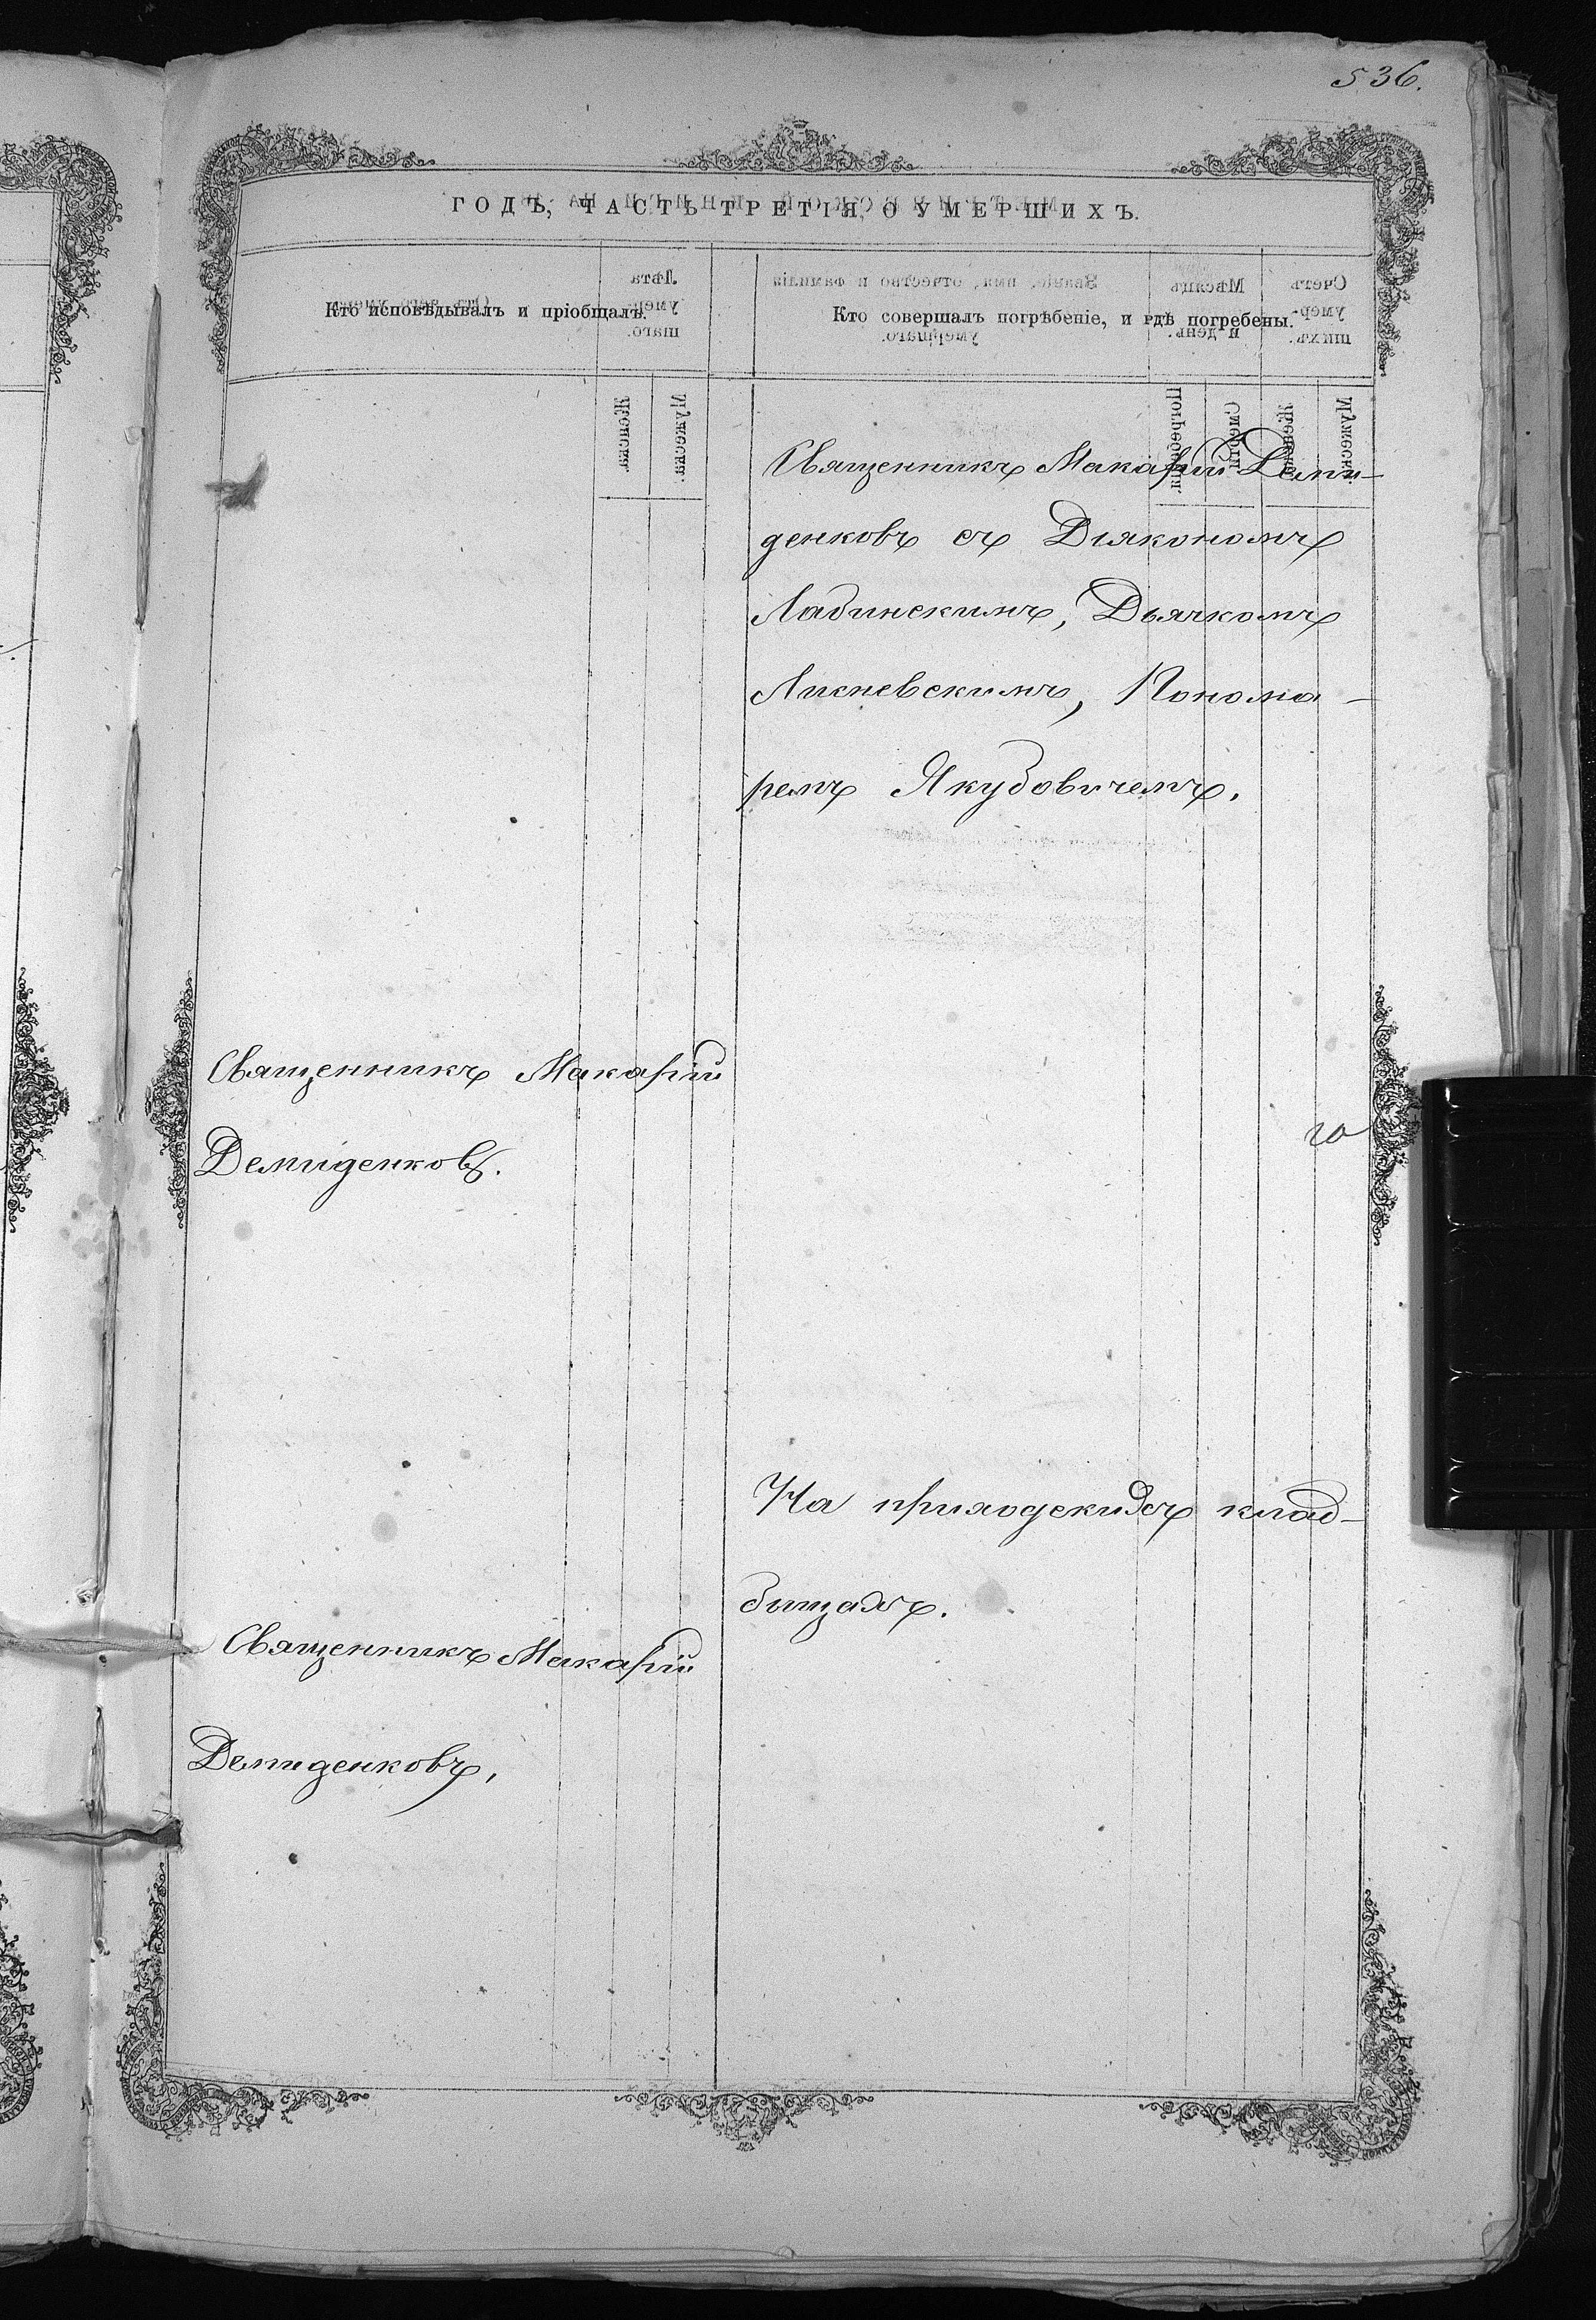 536.
ГОДЪ, ЧАСТЬ ТРЕТІЯ, О УМЕРШИХЪ.
Кто исповѣдывалъ и пріобщалъ.
Кто совершалъ погрѣбеніе, и гдѣ погребены.
Священникъ Макарій Деми-
денковъ съ Діякономъ
Лабинскимъ, Дьячкомъ
Лисневскимъ, Понома-
ремъ Якубовичемъ.
Священникъ Макарій
Демиденковъ.
На приходскихъ клад-
бищахъ.
Священникъ Макарій
Демиденковъ,